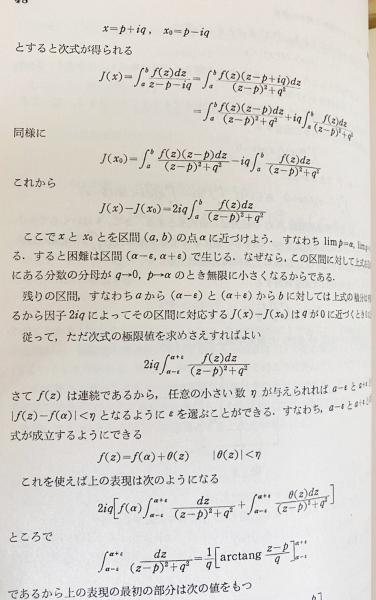 x=p+iq, x₀=p−iq
とすると次式が得られる
J(x)=∫ₐᵇ f(z)dz/(z−p−iq)=∫ₐᵇ f(z)(z−p+iq)dz/((z−p)²+q²)
=∫ₐᵇ f(z)(z−p)dz/((z−p)²+q²)+iq∫ₐᵇ f(z)dz/((z−p)²+q²)
同様に
J(x₀)=∫ₐᵇ f(z)(z−p)dz/((z−p)²+q²)−iq∫ₐᵇ f(z)dz/((z−p)²+q²)
これから
J(x)−J(x₀)=2iq∫ₐᵇ f(z)dz/((z−p)²+q²)
ここで x と x₀ とを区間 (a, b) の点 α に近づけよう. すなわち lim p=α,
る. すると困難は区間 (α−ε, α+ε) で生じる. なぜなら, この区間に対して上式の
にある分数の分母が q→0, p→α のとき無限に小さくなるからである.
残りの区間, すなわち a から (α−ε) と (α+ε) から b に対しては上式の積分は
るから因子 2iq によってその区間に対応する J(x)−J(x₀) は q が 0 に近づくとき
従って, ただ次式の極限値を求めさえすればよい
2iq∫_{α−ε}^{α+ε} f(z)dz/((z−p)²+q²)
さて f(z) は連続であるから, 任意の小さい数 η が与えられれば α−ε と α+ε
|f(z)−f(α)|<η となるように ε を選ぶことができる. すなわち, α−ε と α+ε
式が成立するようにできる
f(z)=f(α)+θ(z) |θ(z)|<η
これを使えば上の表現は次のようになる
2iq[f(α)∫_{α−ε}^{α+ε} dz/((z−p)²+q²)+∫_{α−ε}^{α+ε} θ(z)dz/((z−p)²+q²)]
ところで
∫_{α−ε}^{α+ε} dz/((z−p)²+q²)=1/q[arctang (z−p)/q]_{α−ε}^{α+ε}
であるから上の表現の最初の部分は次の値をもつ